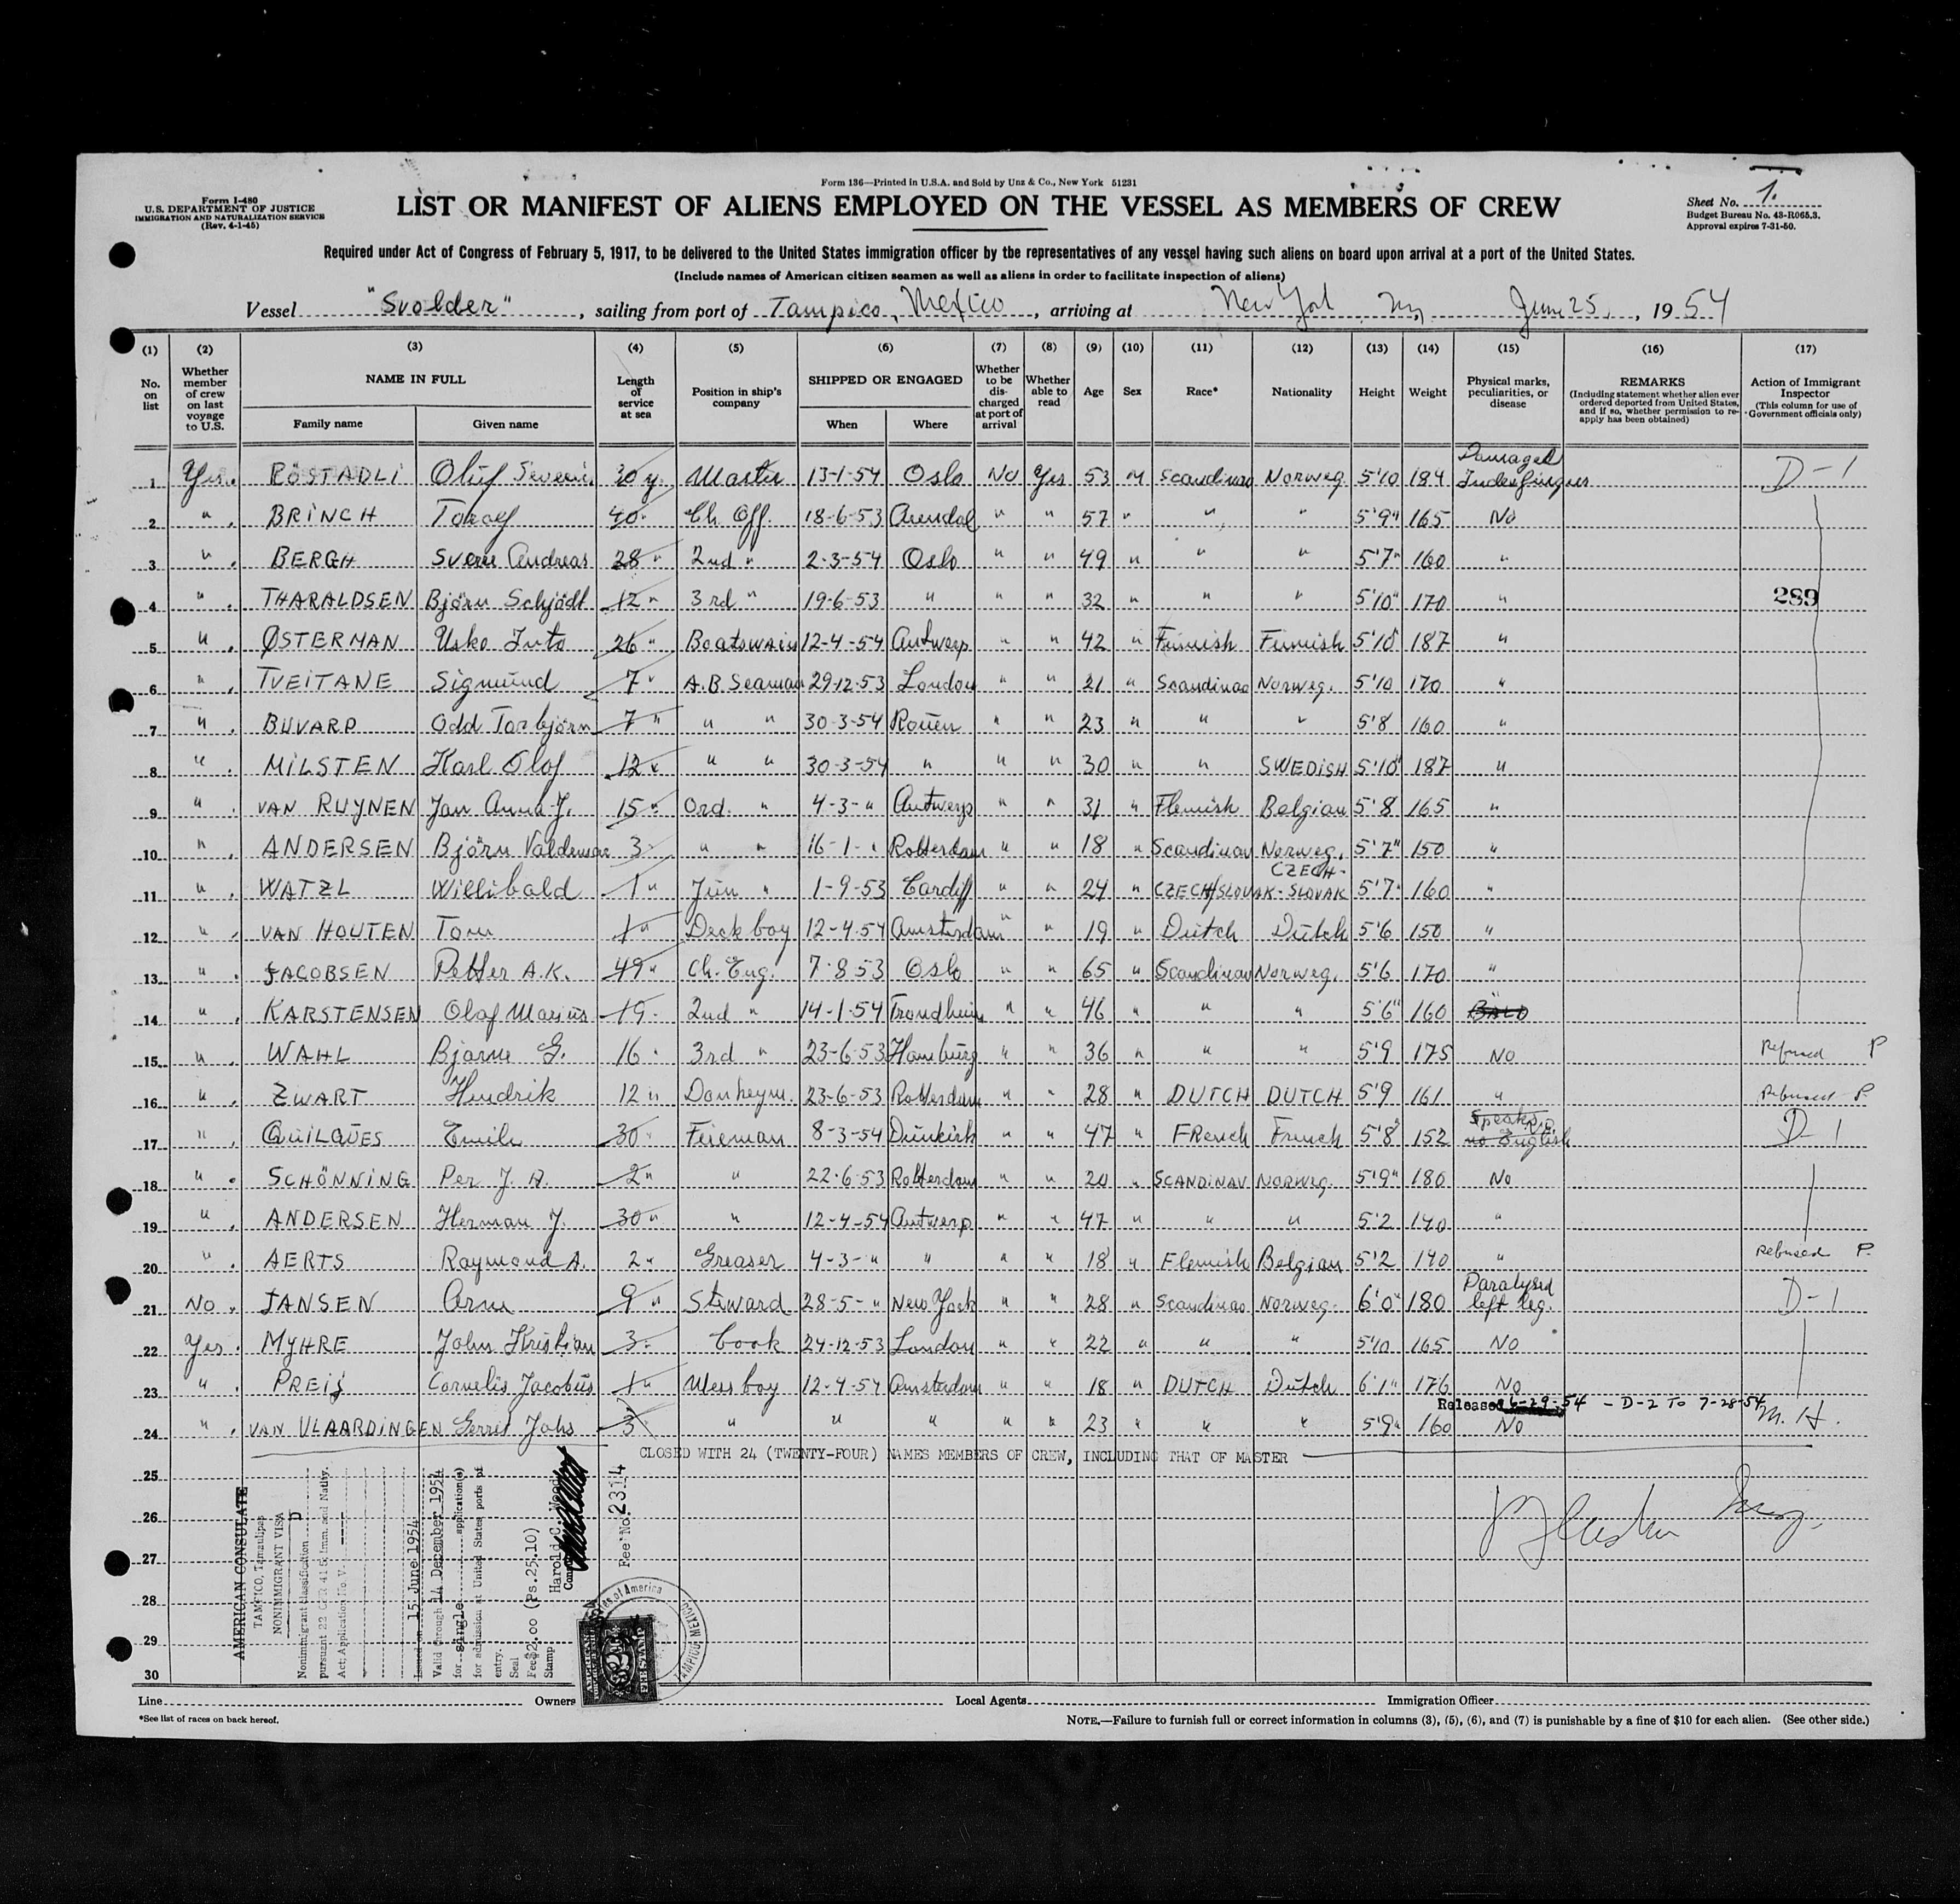 Form 136—Printed in U.S.A. and Sold by Unz & Co., New York 51231
Form I-480
U.S. DEPARTMENT OF JUSTICE
IMMIGRATION AND NATURALIZATION SERVICE
(Rev. 4-1-45)
LIST OR MANIFEST OF ALIENS EMPLOYED ON THE VESSEL AS MEMBERS OF CREW
Sheet No. 1.
Budget Bureau No. 43-R065.3.
Approval expires 7-31-50.
Required under Act of Congress of February 5, 1917, to be delivered to the United States immigration officer by the representatives of any vessel having such aliens on board upon arrival at a port of the United States.
(Include names of American citizen seamen as well as aliens in order to facilitate inspection of aliens)
Vessel "Svolder", sailing from port of Tampico, Mexico, arriving at New York Ny June 25, 1954
(1) (2) (3) (4) (5) (6) (7) (8) (9) (10) (11) (12) (13) (14) (15) (16) (17)
No. on list
Whether member of crew on last voyage to U.S.
NAME IN FULL
Family name
Given name
Length of service at sea
Position in ship's company
SHIPPED OR ENGAGED
When
Where
Whether to be discharged at port of arrival
Whether able to read
Age
Sex
Race*
Nationality
Height
Weight
Physical marks, peculiarities, or disease
REMARKS
(Including statement whether alien ever ordered deported from United States, and if so, whether permission to reapply has been obtained)
Action of Immigrant Inspector
(This column for use of Government officials only)
1 Yes. RÖSTADLI Oluf Severin. 30 y. Master 13-1-54 Oslo No Yes 53 M Scandinav Norweg. 5'10 184 Damaged Indexfingers D-1
2 " BRINCH Toralf 40 " Ch. Off. 18-6-53 Arendal " " 57 " " " 5'9" 165 No
3 " BERGH Sverre Andreas 28 " 2nd " 2-3-54 Oslo " " 49 " " " 5'7" 160 "
4 " THARALDSEN Björn Schjödt 12 " 3rd " 19-6-53 " " " 32 " " " 5'10" 170 " 289
5 " ØSTERMAN Usko Into 26 " Boatswain 12-4-54 Antwerp " " 42 " Finnish Finnish 5'10 187 "
6 " TVEITANE Sigmund 7 " A.B. Seaman 29-12-53 London " " 21 " Scandinav Norweg. 5'10 170 "
7 " BUVARP Odd Torbjörn 7 " " " 30-3-54 Rouen " " 23 " " " 5'8 160 "
8 " MILSTEN Karl Olof 12 " " " 30-3-54 " " " 30 " " SWEDISH 5'10" 187 "
9 " VAN RUYNEN Jan Anna J. 15 " Ord. " 4-3-" Antwerp " " 31 " Flemish Belgian 5'8 165 "
10 " ANDERSEN Björn Valdemar 3 " " " 16-1-" Rotterdam " " 18 " Scandinav Norweg. 5'7" 150 "
11 " WATZL Willibald 1 " Jun " 1-9-53 Cardiff " " 24 " CZECH/SLOVAK CZECH-SLOVAK 5'7" 160 "
12 " VAN HOUTEN Tom 1 " Deck boy 12-4-54 Amsterdam " " 19 " Dutch Dutch 5'6 150 "
13 " JACOBSEN Petter A.K. 49 " Ch. Eng. 7-8 53 Oslo " " 65 " Scandinav Norweg. 5'6 170 "
14 " KARSTENSEN Olaf Marius 19 " 2nd " 14-1-54 Trondheim " " 46 " " " 5'6" 160 BALD
15 " WAHL Bjarne G. 16 " 3rd " 23-6-53 Hamburg " " 36 " " " 5'9 175 No Refused P
16 " ZWART Hendrik 12 " Donkeym. 23-6-53 Rotterdam " " 28 " DUTCH DUTCH 5'9 161 " Refused P.
17 " QUILQUES Emile 30 " Fireman 8-3-54 Dunkirk " " 47 " FRench French 5'8" 152 Speaks no English D-1
18 " SCHÖNNING Per J. A. 2 " " 22-6-53 Rotterdam " " 20 " SCANDINAV NORWEG. 5'9" 180 No
19 " ANDERSEN Herman J. 30 " " 12-4-54 Antwerp " " 47 " " " 5'2 140 "
20 " AERTS Raymond A. 2 " Greaser 4-3-" " " " 18 " Flemish Belgian 5'2 140 " Refused P.
21 No. JANSEN Arne 9 " Steward 28-5-" New York " " 28 " Scandinav Norweg. 6'0" 180 Paralysed left leg. D-1
22 Yes. MYHRE John Kristian 3 " Cook 24-12-53 London " " 22 " " " 5'10 165 No
23 " PREIJ Cornelis Jacobus 1 " Mess boy 12-4-54 Amsterdam " " 18 " DUTCH Dutch 6'1" 176 No
Released 6-29-54 - D-2 TO 7-28-54 M. H.
24 " VAN VLAARDINGEN Gerrit Johs 3 " " " " " " 23 " " " 5'9" 160 No
CLOSED WITH 24 (TWENTY-FOUR) NAMES MEMBERS OF CREW, INCLUDING THAT OF MASTER
25
26
27
28
29
30
AMERICAN CONSULATE
TAMPICO, Tamaulipas
NONIMMIGRANT VISA
Nonimmigrant classification D
pursuant 22 CFR 41.5 Imm. and Natlty.
Act; Application No. V.
Issued on 15 June 1954
Valid through 14 December 1954
for single application(s)
for admission at United States ports of
entry.
Seal
Fee $2.00 (Ps.25.10)
Stamp
Harold C. Wood
Fee No. 2314
TAMPICO, MEXICO
Line Owners Local Agents Immigration Officer
*See list of races on back hereof.
NOTE.—Failure to furnish full or correct information in columns (3), (5), (6), and (7) is punishable by a fine of $10 for each alien. (See other side.)